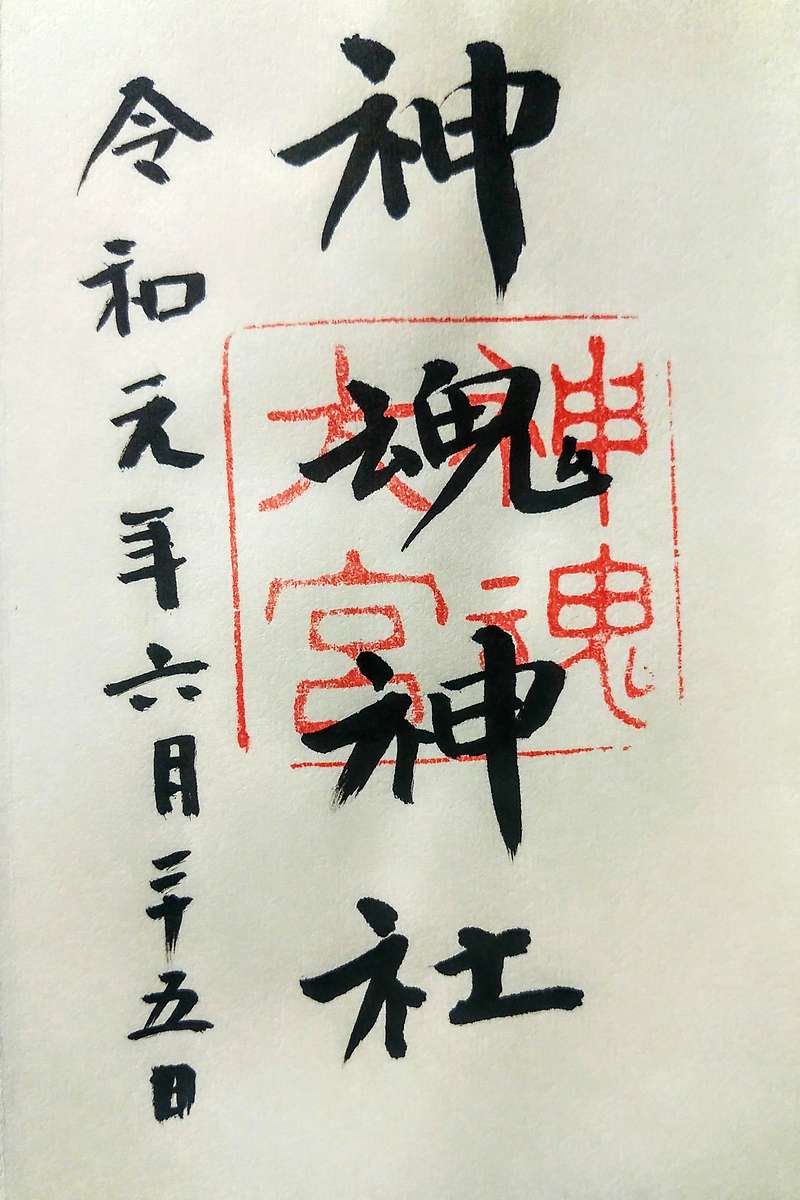 神魂神社
神魂
大宮
令和元年六月二十五日